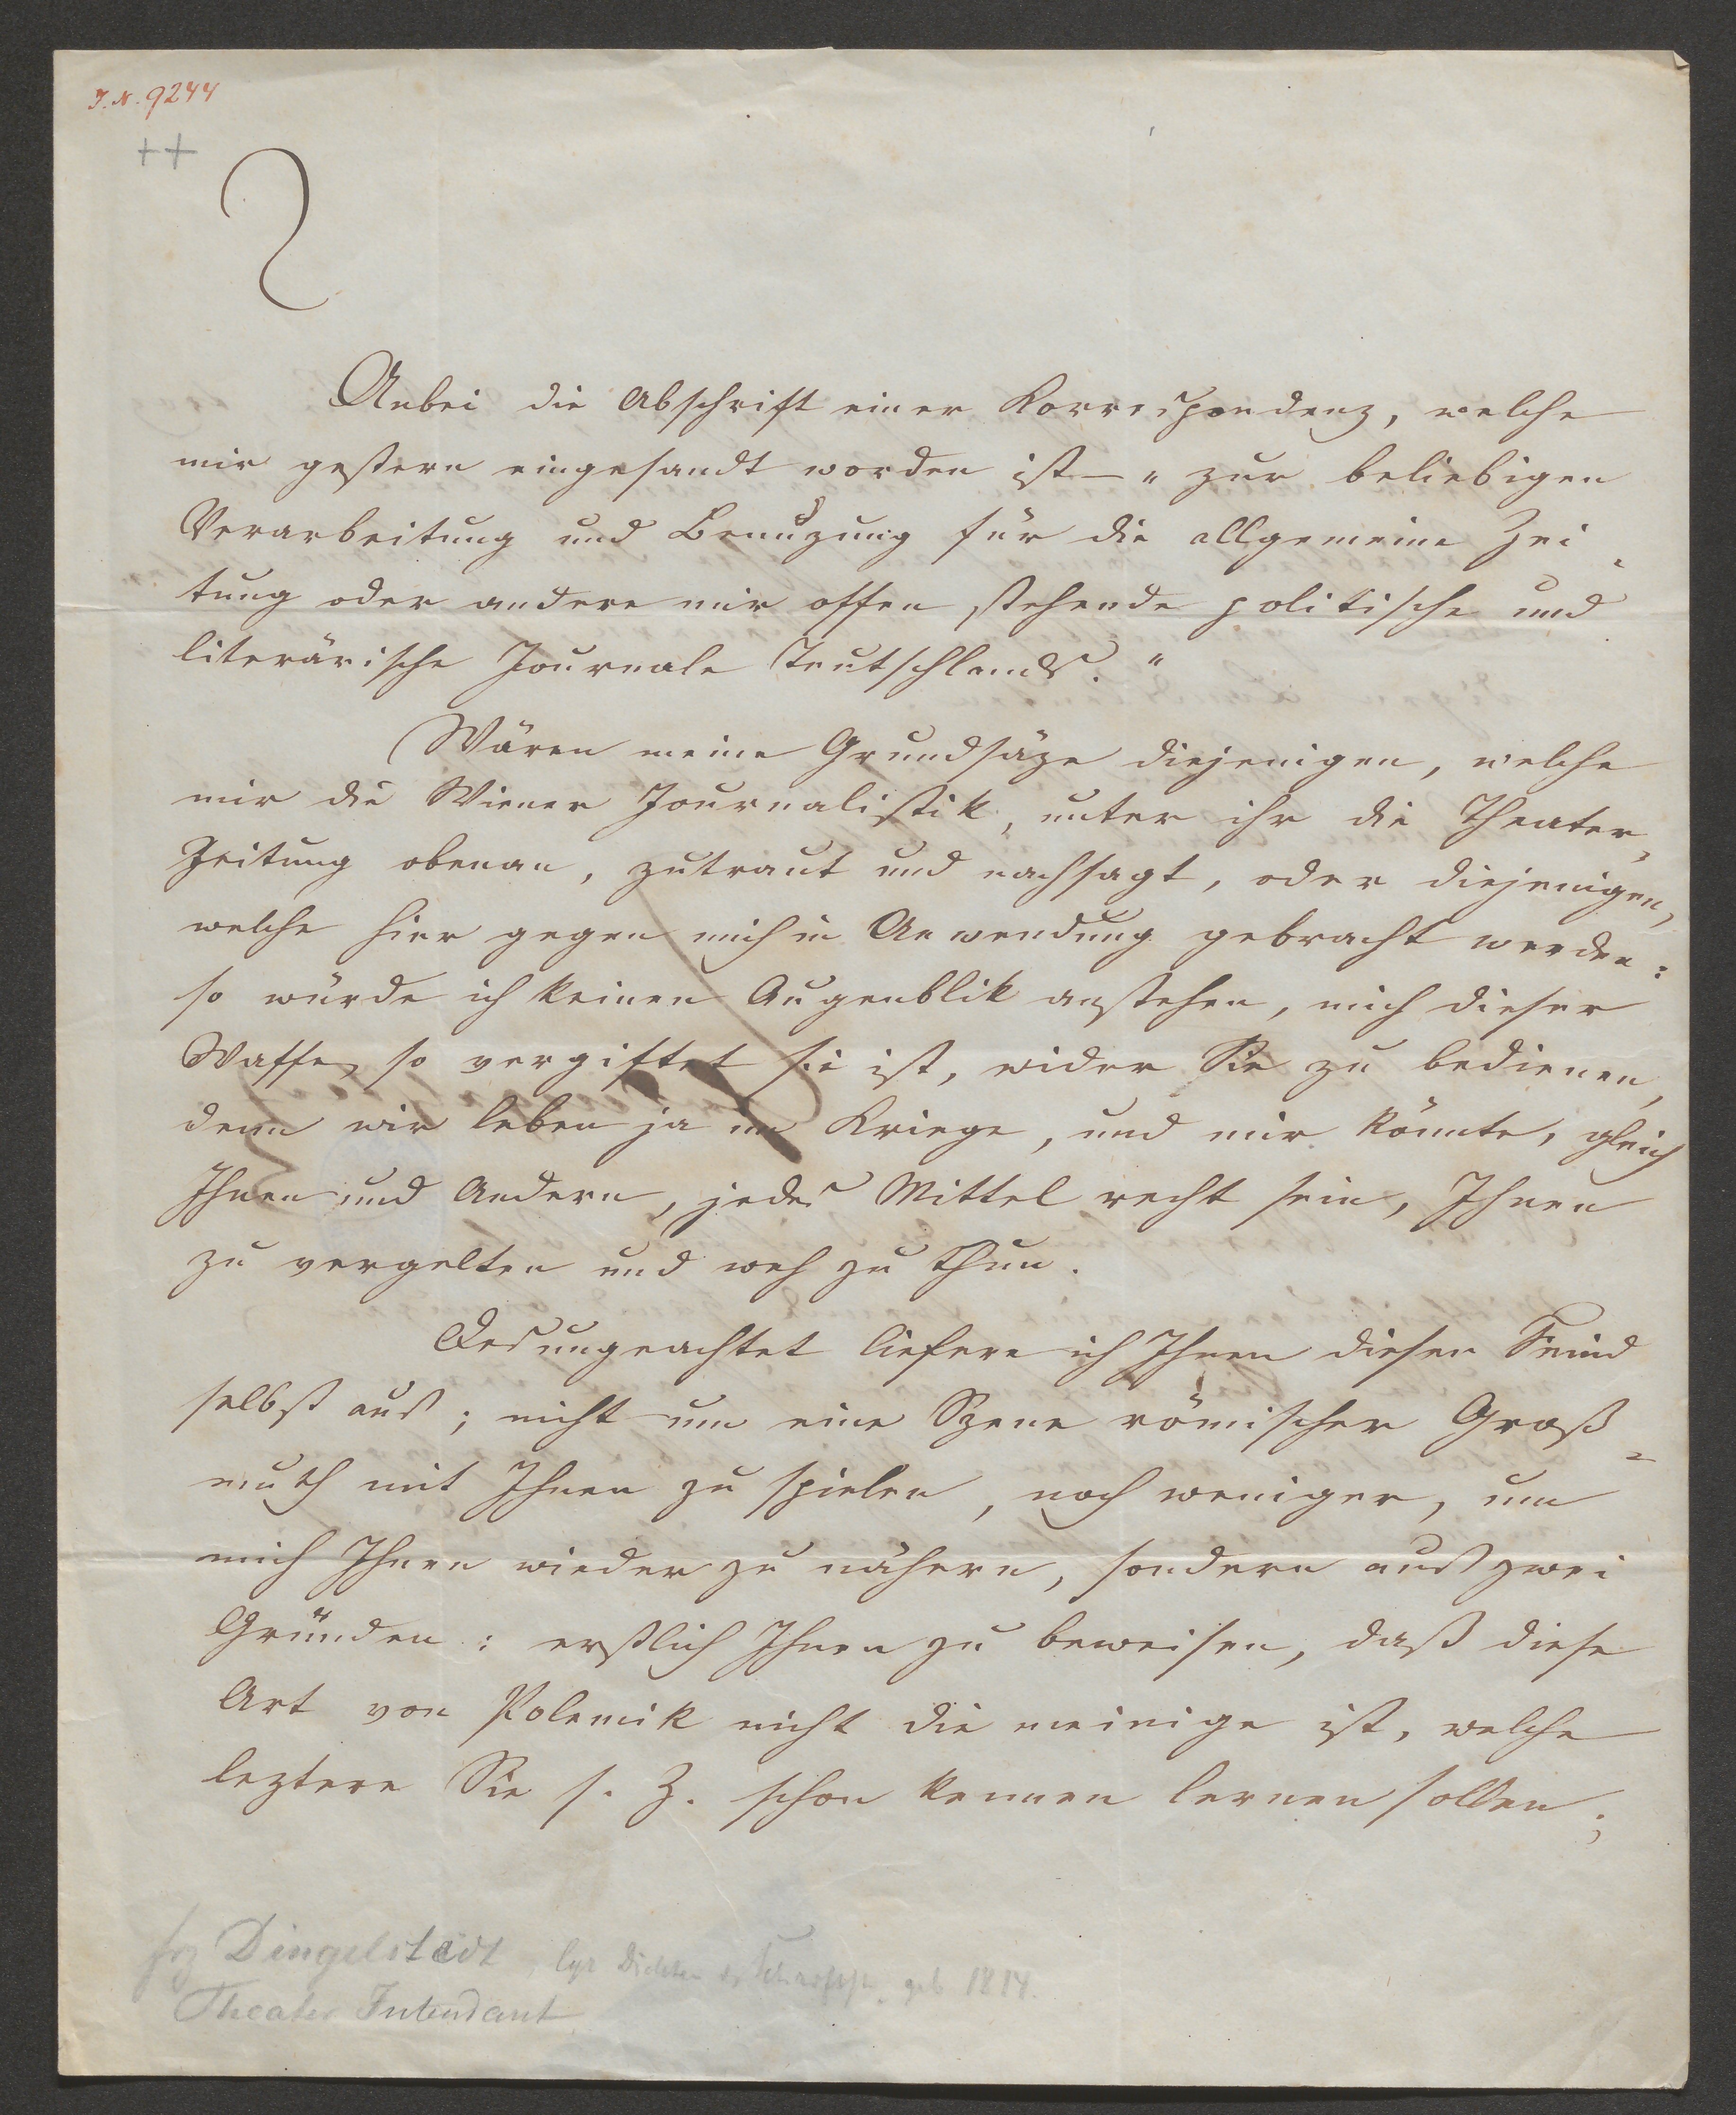 I. N. 9244
++
Anbei die Abschrift einer Korrespondenz, welche
mir gestern eingesandt worden ist – „zur beliebigen
Verarbeitung und Benuzung für die allgemeine Zei-
tung oder andere mir offen stehende politische und
literärische Journale Teutschlands."
Wären meine Grundsäze diejenigen, welche
mir die Wiener Journalistik, unter ihr die Theater-
Zeitung obenan, zutraut und nachsagt, oder diejenigen,
welche hier gegen mich in Anwendung gebracht werden:
so würde ich keinen Augenblik anstehen, mich dieser
Waffe, so vergiftet sie ist, wider Sie zu bedienen,
denn wir leben ja im Kriege, und mir könnte, gleich
Ihnen und Andern, jedes Mittel recht sein, Ihnen
zu vergelten und weh zu thun.
Desungeachtet liefere ich Ihnen diesen Feind
selbst aus; nicht um eine Szene römischer Groß-
muth mit Ihnen zu spielen, noch weniger, um
mich Ihnen wieder zu nähern, sondern aus zwei
Gründen: erstlich Ihnen zu beweisen, daß diese
Art von Polemik nicht die meinige ist, welche
leztere Sie s. Z. schon kennen lernen sollen;
frz Dingelstedt, lyr Dichter geb 1814.
Theater Intendant